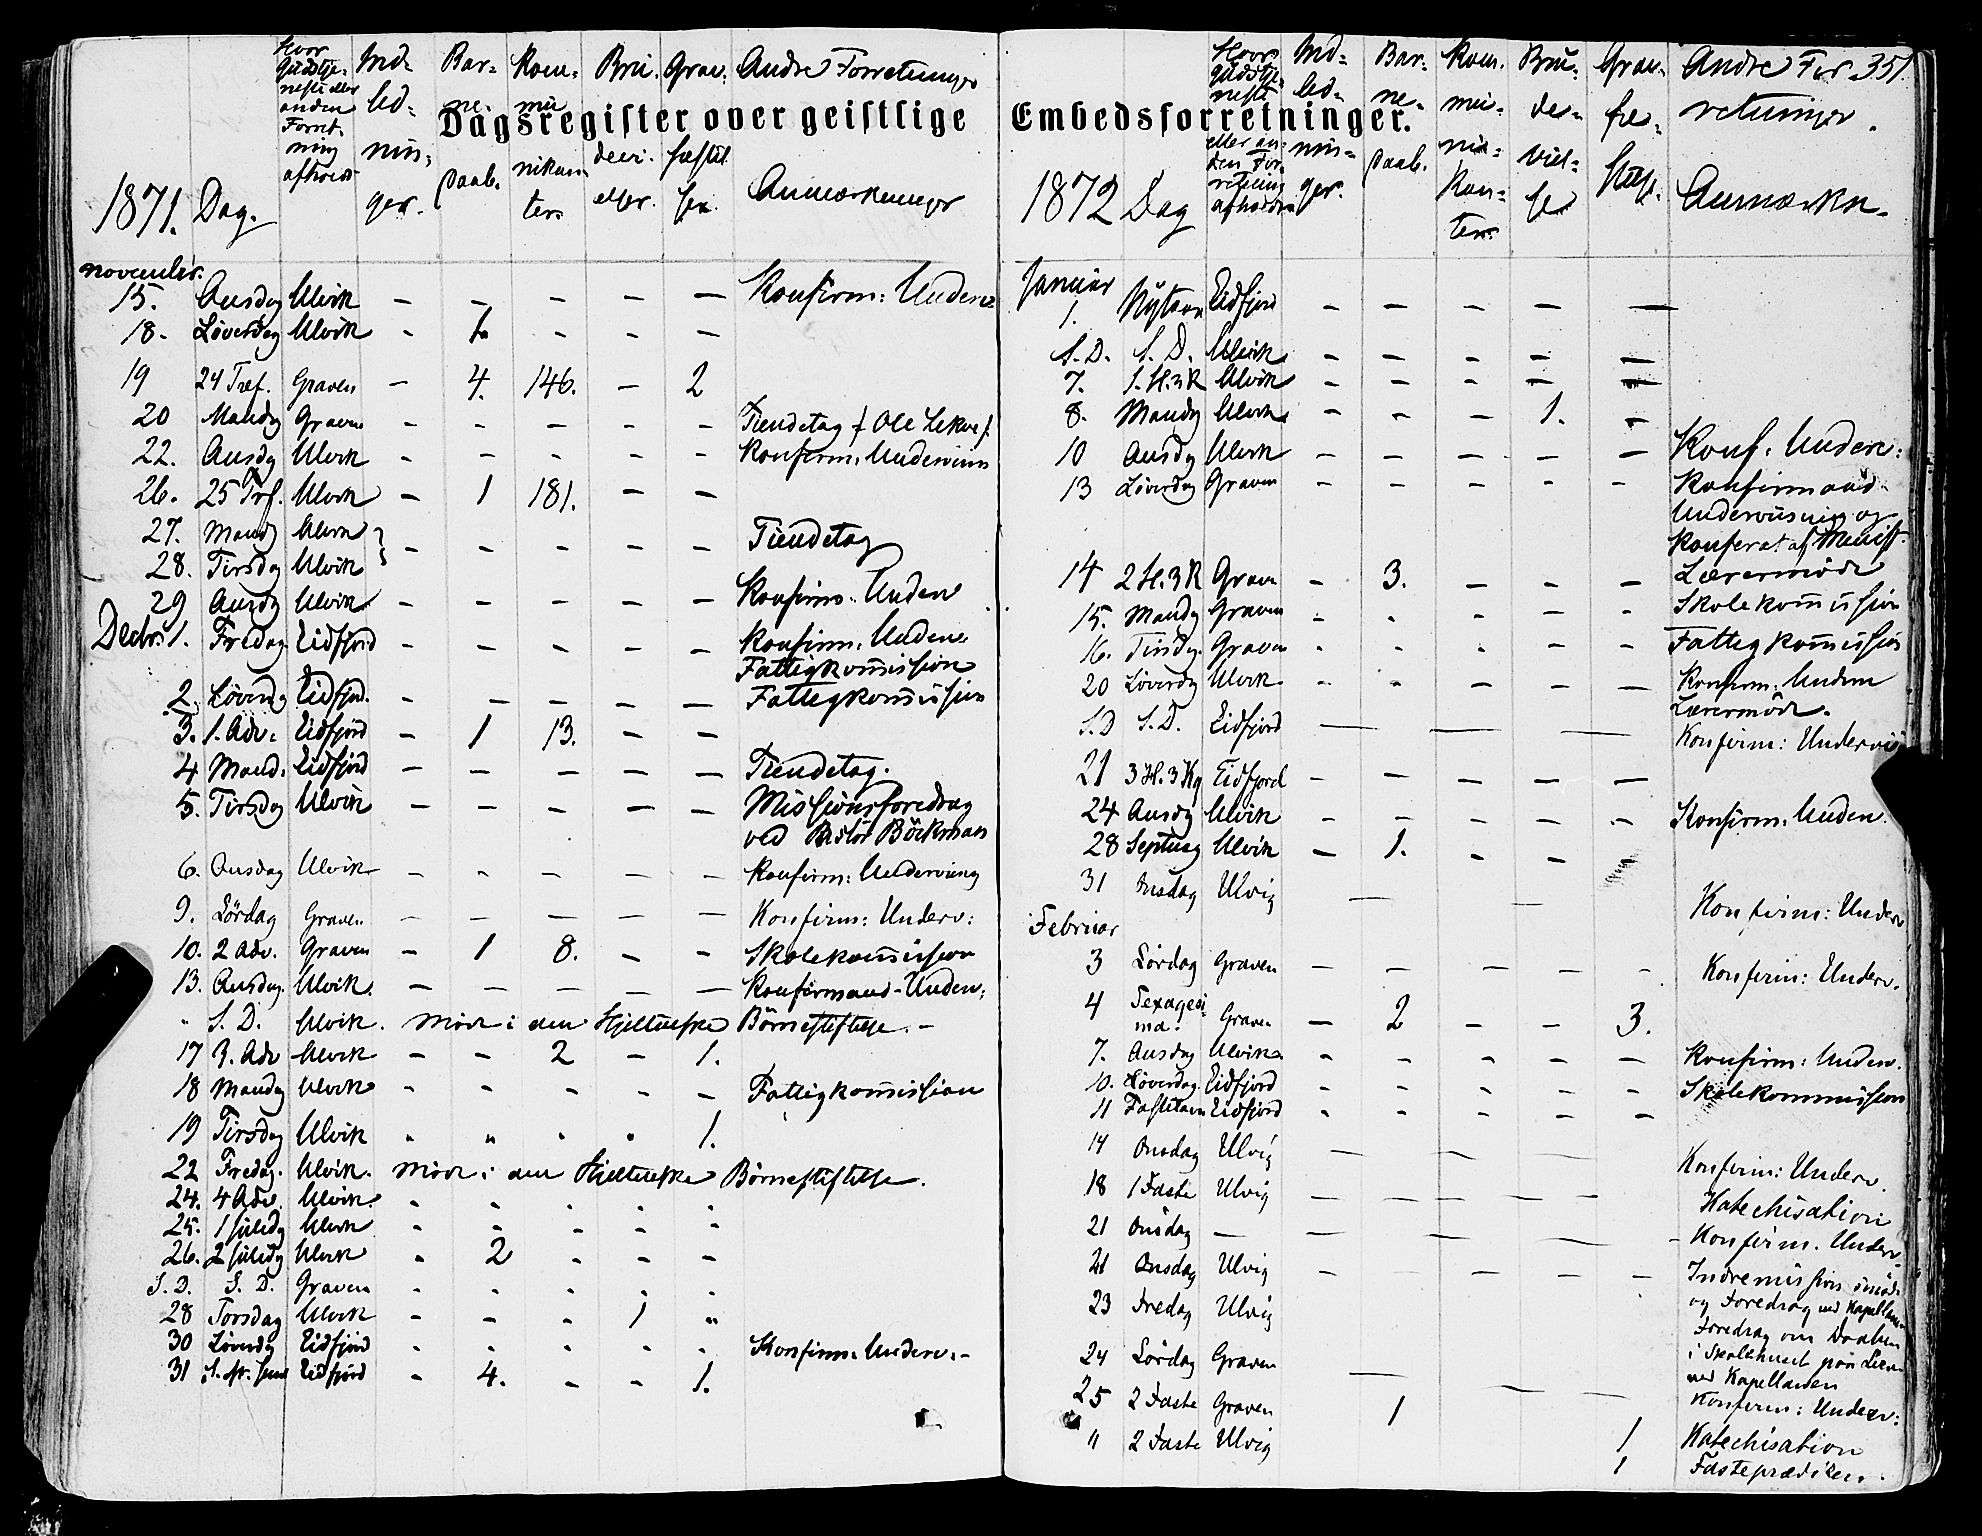 Dagsregister over geistlige Embedsforretninger.
351.
1871. Dag. Hvor Gudstjeneste eller anden Forretning afholdt Indledninger. Barnedaab. Kommunikanter Brudevielser. Gravfæstelser Andre Forretninger Anmærkninger
November.
15. Onsdag Ulvik – – – – – Konfirm: Underv
18. Løverdag Ulvik - 1. - - -
19 24 Tref. Graven – 4. 146. – 2
20 Mandg Graven - - - - - Tiendetag
22. Onsdg Ulvik - - - - - Konfirm. Undervisn
26. 25 Trf. Ulvik – 1 181. – –
27. Mandg Ulvik
28. Tirsdag Ulvik - - - - - Tiendetag
29 Onsdg Ulvik - - - - - Konfirm. Underv
Decbr. 1. Fredag Eidfjord - - - - - Konfirm. Underv
Fattigkommission
2. Løverdg Eidfjord. - - - - - Fattigkommission
3. 1. Adv. Eidfjord – 1 13. – –
4 Mand. Eidfjord – – – – – Tiendetag.
5. Tirsdag Ulvik – – – – – Missionsforedrag
ved Böckman
6. Onsdag Ulvik – – – – – Konfirm: Underviisng
9. Lördag Graven – – – – – Konfirm: Underv:
10. 2 Adv. Graven – 1 8. – – Skolekommission
13. Onsdag. Ulvik. – – – – – Konfirmand-Underv:
" S. D. Ulvik. Möde i den Hjeltneske Börnestiftelse. –
17 3. Adv Ulvik – – 2 – 1.
18 Mandag Ulvik - - - - – Fattigkommission
19 Tirsdag Ulvik " " " " 1.
22 Fredag. Ulvik. Möde i den Hjeltneske Börnestiftelse.
24. 4 Adv. Ulvik. - - - - -
25. 1 Juledg Ulvik - - - - -
26. 2 Juledg Ulvik - 2 - - -
S. D. S. D. Graven - - - - -
28 Torsdag Ulvik - - - 1 "
30 Løverdg Eidfjord - - - - - Konfirm. Underv. –
31 Eidfjord - 4. - - 1.
1872 Dag Hvor Gudstjeneste eller anden Forretning afholdes Indledninger. Barnedaab. Kommunikanter Brudevielse Andre Forretninger. Anmærkn.
Januar
1. Nytaar Eidfjord – – – – —
S. D. S. D. Ulvik – – – – –
7. 1. H.3K Ulvik – – – – –
8. Mandg Ulvik - - - 1. -
10 Onsdg Ulvik – – – – – Konf. Underv:
13 Løverdg Graven - - - - - Konfirmand
Underviisning og
Lærermöde
14 2 H.3K Graven – 3. – – –
15. Mandg Graven - - - - - Skolekommission
16. Tirsdg. Graven - - - - - Fattigkommission
20 Løverdg Ulvik - - - - – Konfirm. Underv
Lærermöde.
S.D S.D. Eidfjord — — — Konfirm: Undervis
21 3 H.3Kg Eidfjord – – – – –
24 Onsdg Ulvik - - - - - Konfirm. Underv.
28 Septuag Ulvik – 1. - - -
31 Onsdag Ulvig — — Konfirm: Underv
Februar
3 Lördag Graven – – – – - Konfirm: Underv.
4 Sexagesima. Graven – 2 – – 3.
7. Onsdag Ulvik - - - - - Konfirm: Underv.
10. Løverdag. Eidfjord - - - - - Skolekommission
11 Fastelavn Eidfjord - - - - -
14 Onsdag Ulvig – – – – Konfirm: Underv.
18 1 Faste Ulvig – – – – – Katechisation
21 Onsdag – – – – – Konfirm. Underv.
21 Onsdag Ulvig – – – – – Indremissionsmöde
og Foredrag ved Kapellanen
23 Fredag Ulvig Foredrag om Daaben
i Skolehuset
ved Kapellanen
24 Lördag Graven — — Konfirm: Underv:
25 2 Faste Graven 1 1 Katechisation
" 2 Faste Ulvig 1 Fasteprædiken.